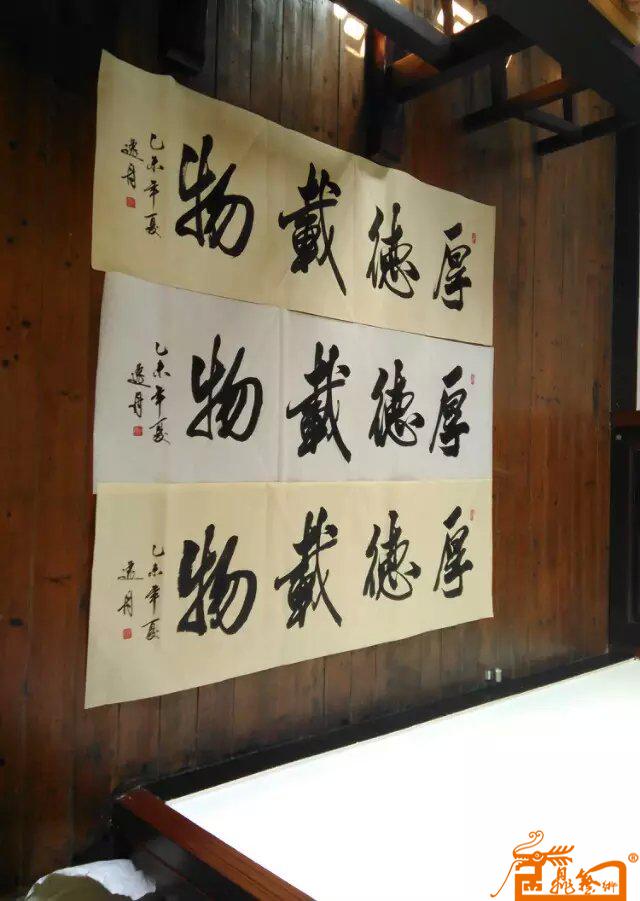 厚德載物
乙未年夏
逸舟
厚德載物
乙未年夏
逸舟
厚德載物
乙未年夏
逸舟